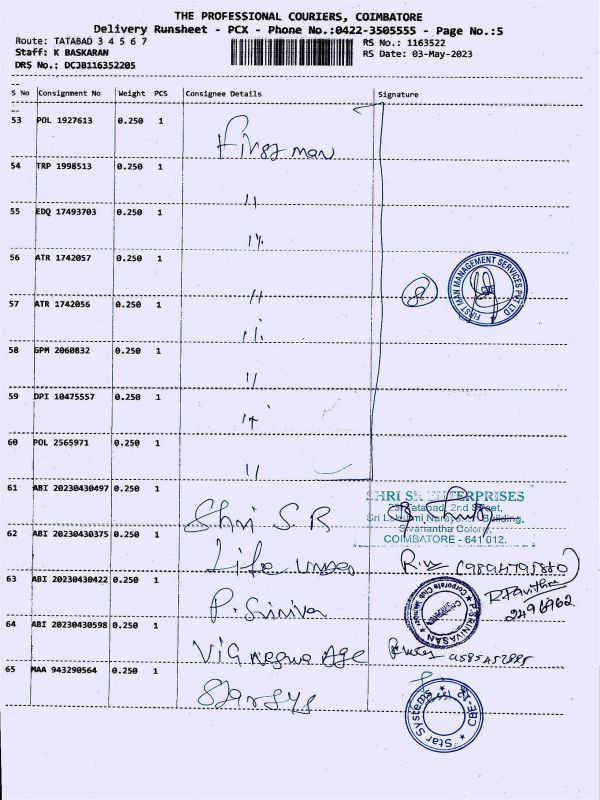 THE PROFESSIONAL COURIERS, COIMBATORE
Delivery Runsheet - PCX - Phone No.:0422-3505555 - Page No.:5
Route: TATABAD 3 4 5 6 7 RS No.: 1163522
Staff: K BASKARAN RS Date: 03-May-2023
DRS No.: DCJB116352205
S No Consignment No Weight PCS Consignee Details Signature
53 POL 1927613 0.250 1 First man
54 TRP 1998513 0.250 1 11
55 EDQ 17493703 0.250 1 11
56 ATR 1742057 0.250 1 11
8
FIRST MAN MANAGEMENT SERVICES PVT LTD
CBE
57 ATR 1742056 0.250 1 11
58 GPM 2060832 0.250 1 11
59 DPI 10475557 0.250 1 11
60 POL 2565971 0.250 1 11
61 ABI 20230430497 0.250 1 Shri S R
SHRI SR ENTERPRISES
Tatabad, 2nd Street,
Sri Lakshmi Narayana Building,
Sivanantha Colony
COIMBATORE - 641 012.
62 ABI 20230430375 0.250 1 Life
63 ABI 20230430422 0.250 1 P. Sriniva
P. SRINIVASAN
Corporate Club Member
Coimbatore
R Pavithra
2496962
64 ABI 20230430598 0.250 1 Vignegwa Age
65 MAA 943290564 0.250 1 Star sys
Star Systems
CBE-12